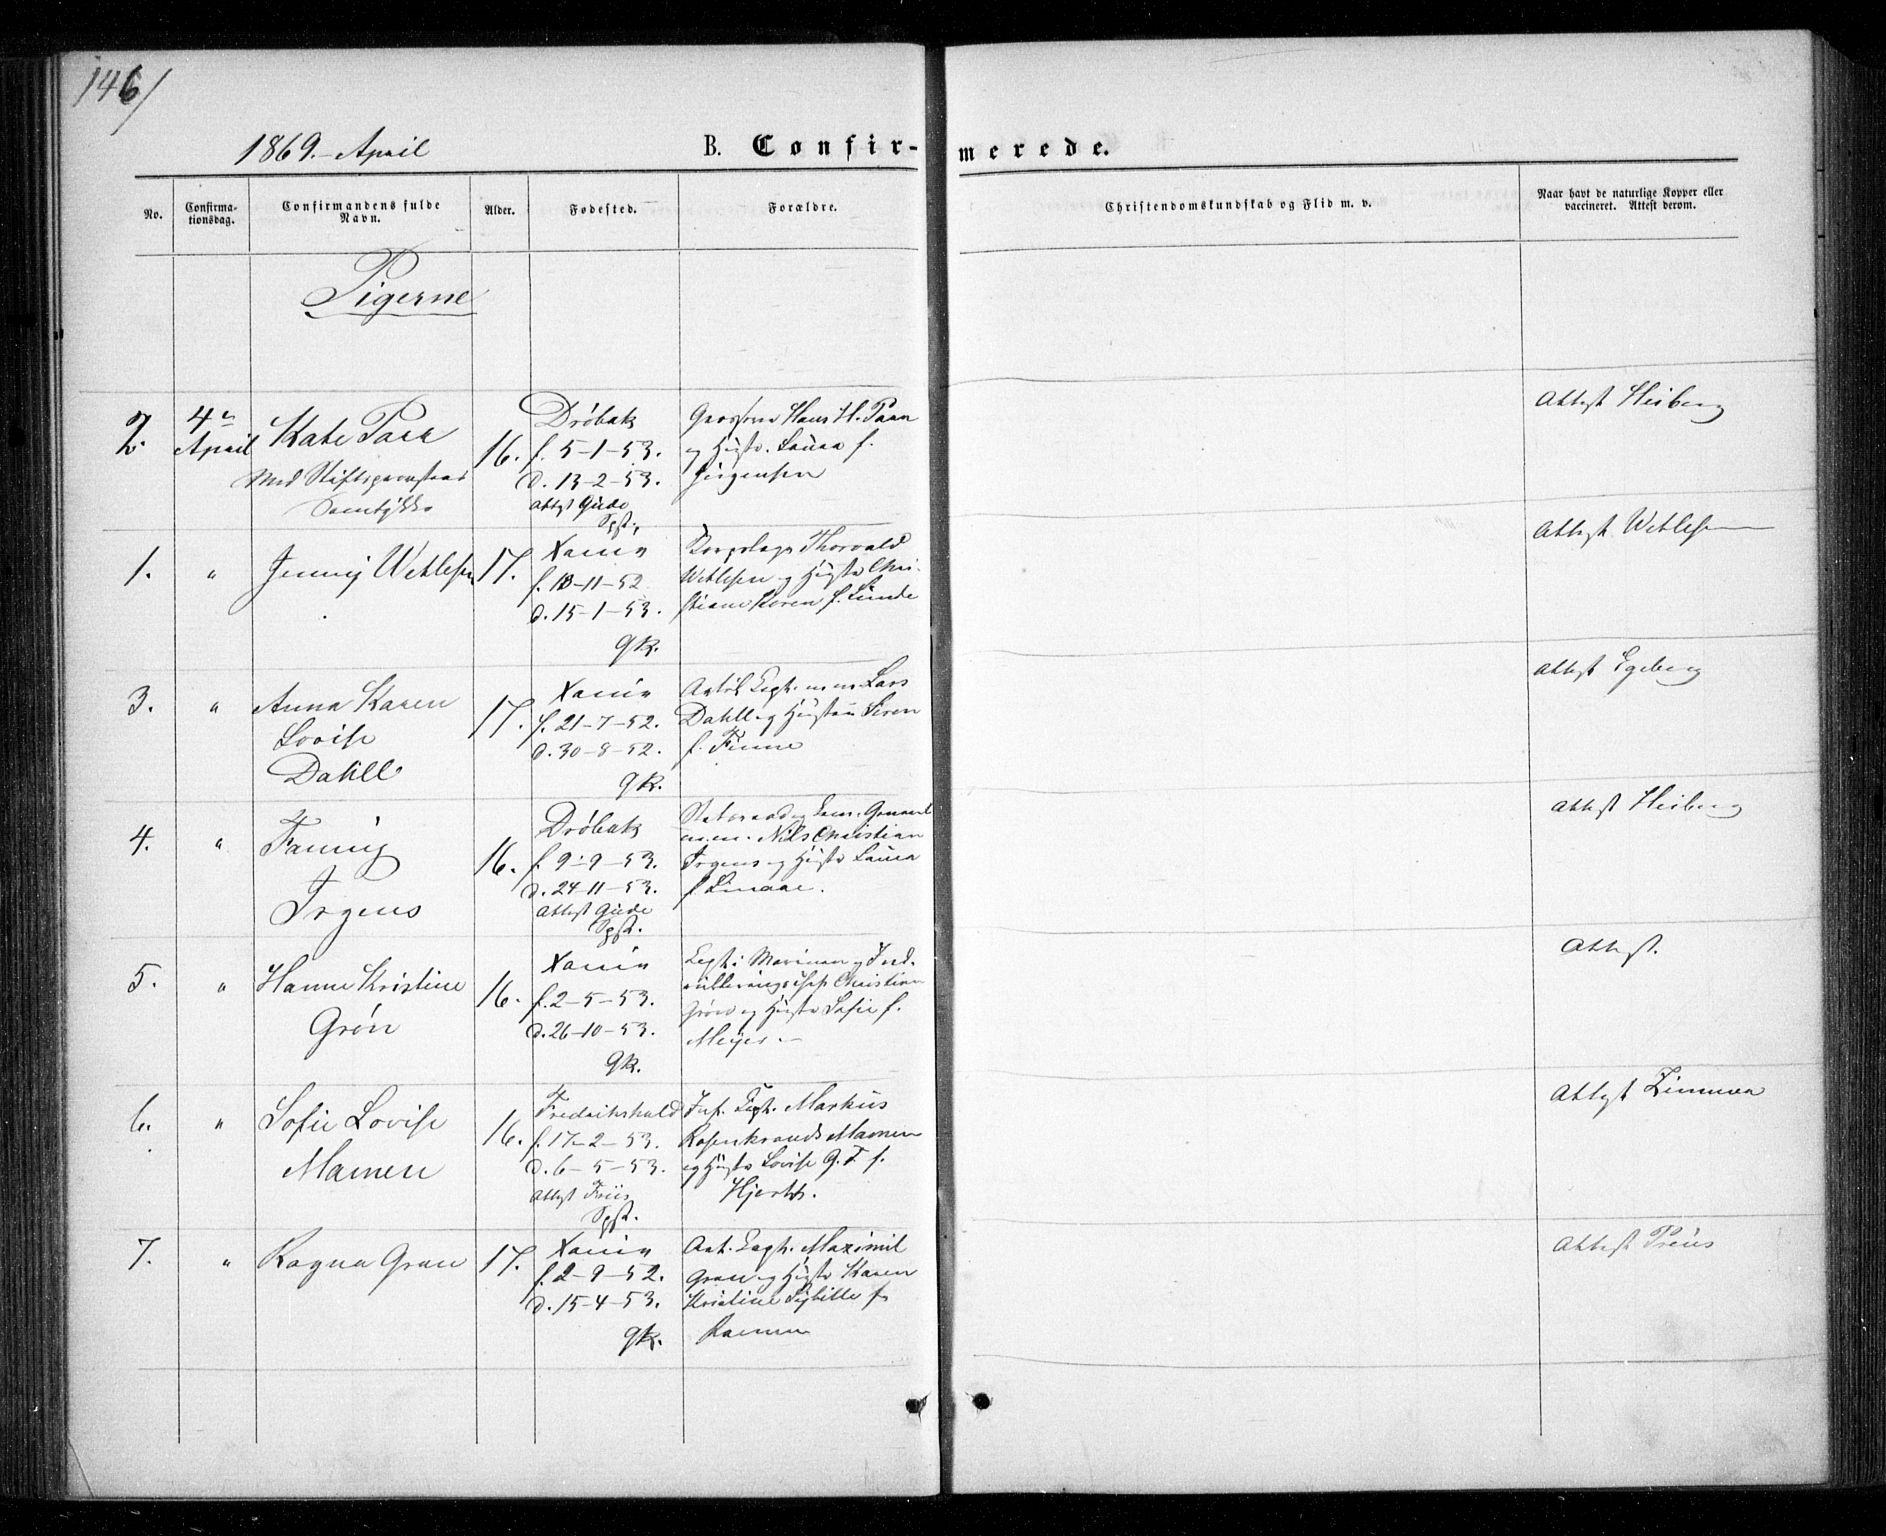 146/
1869. April
B. Confir-merede.
No.
Confirma-
tionsdag.
Confirmandens fulde
Navn.
Alder.
Fødested.
Forældre.
Christendomskundskab og Flid m. v.
Naar havt de naturlige Kopper eller
vaccineret. Attest derom.
Pigerne
2.
4de
April
Kate Parr
Med Stiftsprovstens
Samtykke
16.
Drøbak
f. 5-1-53.
d. 13-2-53.
attest Gude
Spst.
Hans H. Parr
og Hustr. Laura f.
Jørgensen
Attest Heiberg
1.
"
Jenny Wetlesen
17.
Xania
f. 18-11-52
d. 15-1-53.
gk.
Korpslæge Thorvald
Wetlesen og Hustr Chri-
stiane Koren f. Lunde
Attest Wetlesen
3.
"
Anna Karen
Lovise
Dahll
17.
Xania
f. 21-7-52.
d. 30-8-52.
gk.
Artil. Capt. m.m. Lars
Dahll og Hustru Siren
f. Finne
Attest Egeberg
4.
"
Fanny
Irgens
16.
Drøbak
f. 9-9-53.
d. 24-11-53.
attest Gude
Spst.
Statsraad og
m.m. Nils Christian
Irgens og Hustr Laura
f. Smaae.
Attest Heiberg
5.
"
Hanne Kristine
Grøn
16.
Xania
f. 2-5-53.
d. 26-10-53.
gk.
Capt. i Marinen og Ind-
rulleringschef Christian
Grøn og Hustr Sofie f.
Meyer
Attest.
6.
"
Sofie Lovise
Mamen
16.
Fredrikshald
f. 17-2-53.
d. 6-5-53.
attest Friis
Spst.
Inf. Capt. Markus
Rosenkrands Mamen
og Hustr Lovise G. F. f.
Hjorth.
Attest Zimmer
7.
"
Ragna Gran
17.
Xania
f. 2-9-52.
d. 15-4-53.
gk.
Art. Capt. Maximil
Gran og Hustr Karen
Kristine Sybille f.
Attest Preus